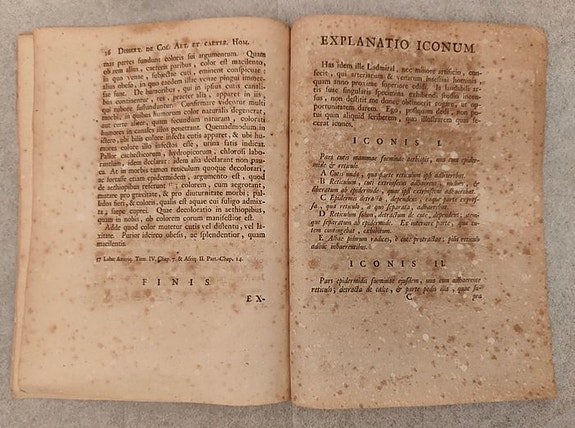 16 DISSERT. DE COL. AET. ET CAETER. HOM.
mas partes fundunt coloris sui argumentum. Quam
est rem alius, caeteris paribus, color est macilento,
in quo venae, subjectae cuti, eminent conspectae:
alius obeso, in quo eaedem istae venae pingui immer-
sae sunt. De humoribus, qui in ipsius cutis canali-
bus continentur, res, praeter alia, apparet in his,
qui rubore suffunduntur. Confirmare videntur multi
morbi, in quibus humorum color naturalis degenerat,
aut certe alium, quam secundum naturam, colorati
humores in canales illos penetrant. Quemadmodum in
ictero, ubi bilis colore infecta cutis apparet, & ubi hu-
mores colore illo infectos esse, urina satis indicat.
Pallor cachecticorum, hydropicorum, chlorosi labo-
rantium, idem declarat: idem alia declarant non pau-
ca. At in morbis tamen reticulum quoque decolorari,
ac fortasse etiam epidermidem, argumento est, quod
de aethiopibus referunt 37; colorem, cum aegrotant,
mutare pro gravitate, & pro diuturnitate morbi; pal-
lidos fieri, & coloris, qualis est aquae cui fuligo admix-
ta, saepe cuprei. Quae decoloratio in aethiopibus,
quam in nobis, ob colorem eorum manifestior est.
Adde quod color mutetur cutis vel distentu, vel la-
xitate. Purior idcirco obesis, ac splendentior, quam
macilentis.
37 Labat Ameriq. Tom. IV. Chap. 7. & Afriq. II. Part. Chap. 14.
FINIS
EX-
EXPLANATIO ICONUM.
Has idem ille Ladmiral, nec minore artificio, con-
fecit, qui arteriarum & venarum intestini hominis
quam anno proxime superiore edidi. Is laudabili ar-
tis suae singularis specimina exhibendi studio incen-
sus, non destitit me donec obtineret rogare, ut op-
portunitatem darem. Ego, possessus desii, non pu-
tui quin aliquid scriberem, quo illustrarem quas fe-
cerat icones.
ICONIS I.
Pars cutis mammae foeminae aethiopis, una cum epider-
mide & reticulo.
A Cutis nuda, qua parte reticulum ipsi adhaerebat.
B Reticulum, cuti extrinsecus adhaerens, nudum, &
liberatum ab epidermide, quae ipsi extrinsecus adhaerebat.
C Epidermis detracta, dependens; eaque parte expres-
sa, qua reticulo, a quo separata, adhaerebat.
D Reticulum solum, detractum de cute, dependens; item-
que separatum ab epidermide. Ex interiore parte, qua cu-
tem contingebat, exhibitum.
E Albae pilorum radices, e cute protractae, pilis reticulo
adhuc inhaerentibus.
ICONIS II.
Pars epidermidis foeminae ejusdem, una cum adhaerente
reticulo, detracta de calce, & parte pedis illa, quae su-
C. pra